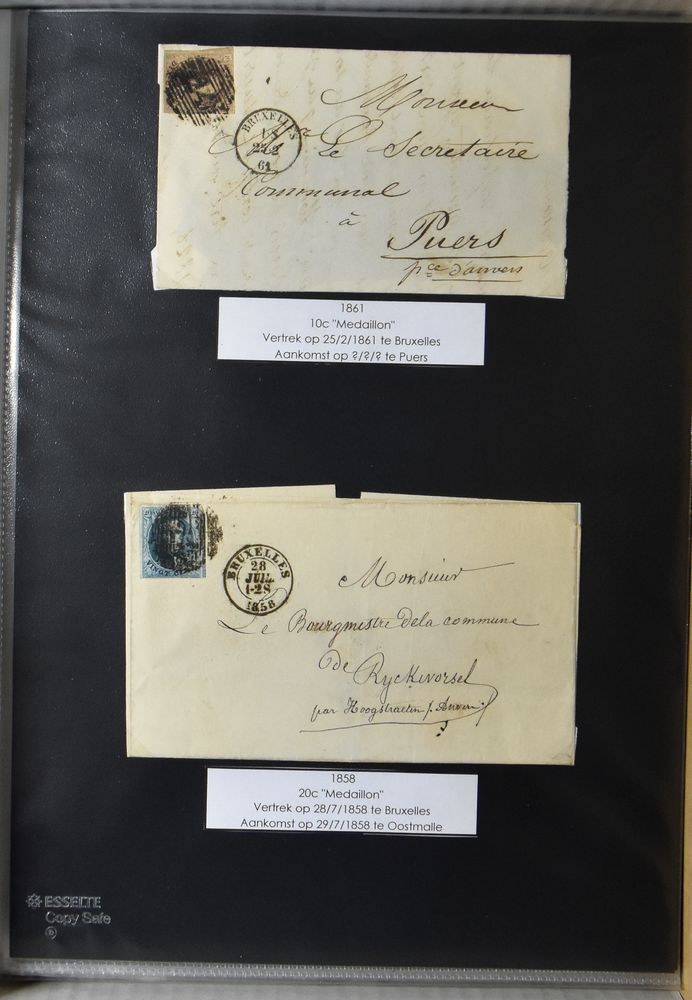 BRUXELLES
1-S
61
Monsieur
Le Secretaire
Communal
à
Puers
pce d'anvers
1861
10c "Medaillon"
Vertrek op 25/2/1861 te Bruxelles
Aankomst op ?/?/? te Puers
VINGT
BRUXELLES
28
JUIL.
1-2S
1858
Monsieur
Le Bourgmestre de la commune
de Ryckevorsel
par Hoogstraeten p. Anvers
1858
20c "Medaillon"
Vertrek op 28/7/1858 te Bruxelles
Aankomst op 29/7/1858 te Oostmalle
ESSELTE
Copy Safe